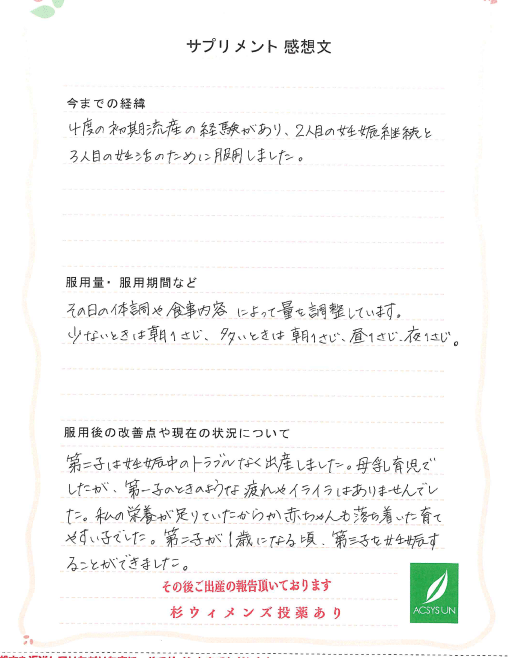 サプリメント 感想文
今までの経緯
4度の初期流産の経験があり、2人目の妊娠継続と
3人目の妊活のために服用しました。
服用量・服用期間など
その日の体調や食事内容によって量を調整しています。
少ないときは朝1さじ、多いときは朝1さじ、昼1さじ、夜1さじ。
服用後の改善点や現在の状況について
第二子は妊娠中のトラブルなく出産しました。母乳育児で
したが、第一子のときのような疲れやイライラはありませんでし
た。私の栄養が足りていたからか赤ちゃんも落ち着いた育て
やすい子でした。第二子が1歳になる頃、第三子を妊娠す
ることができました。
その後ご出産の報告頂いております
杉ウィメンズ投薬あり
ACSYSUN